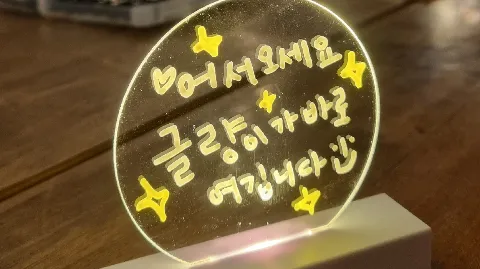 ♡어서오세요
글량이가 바로
여깁니다 :)